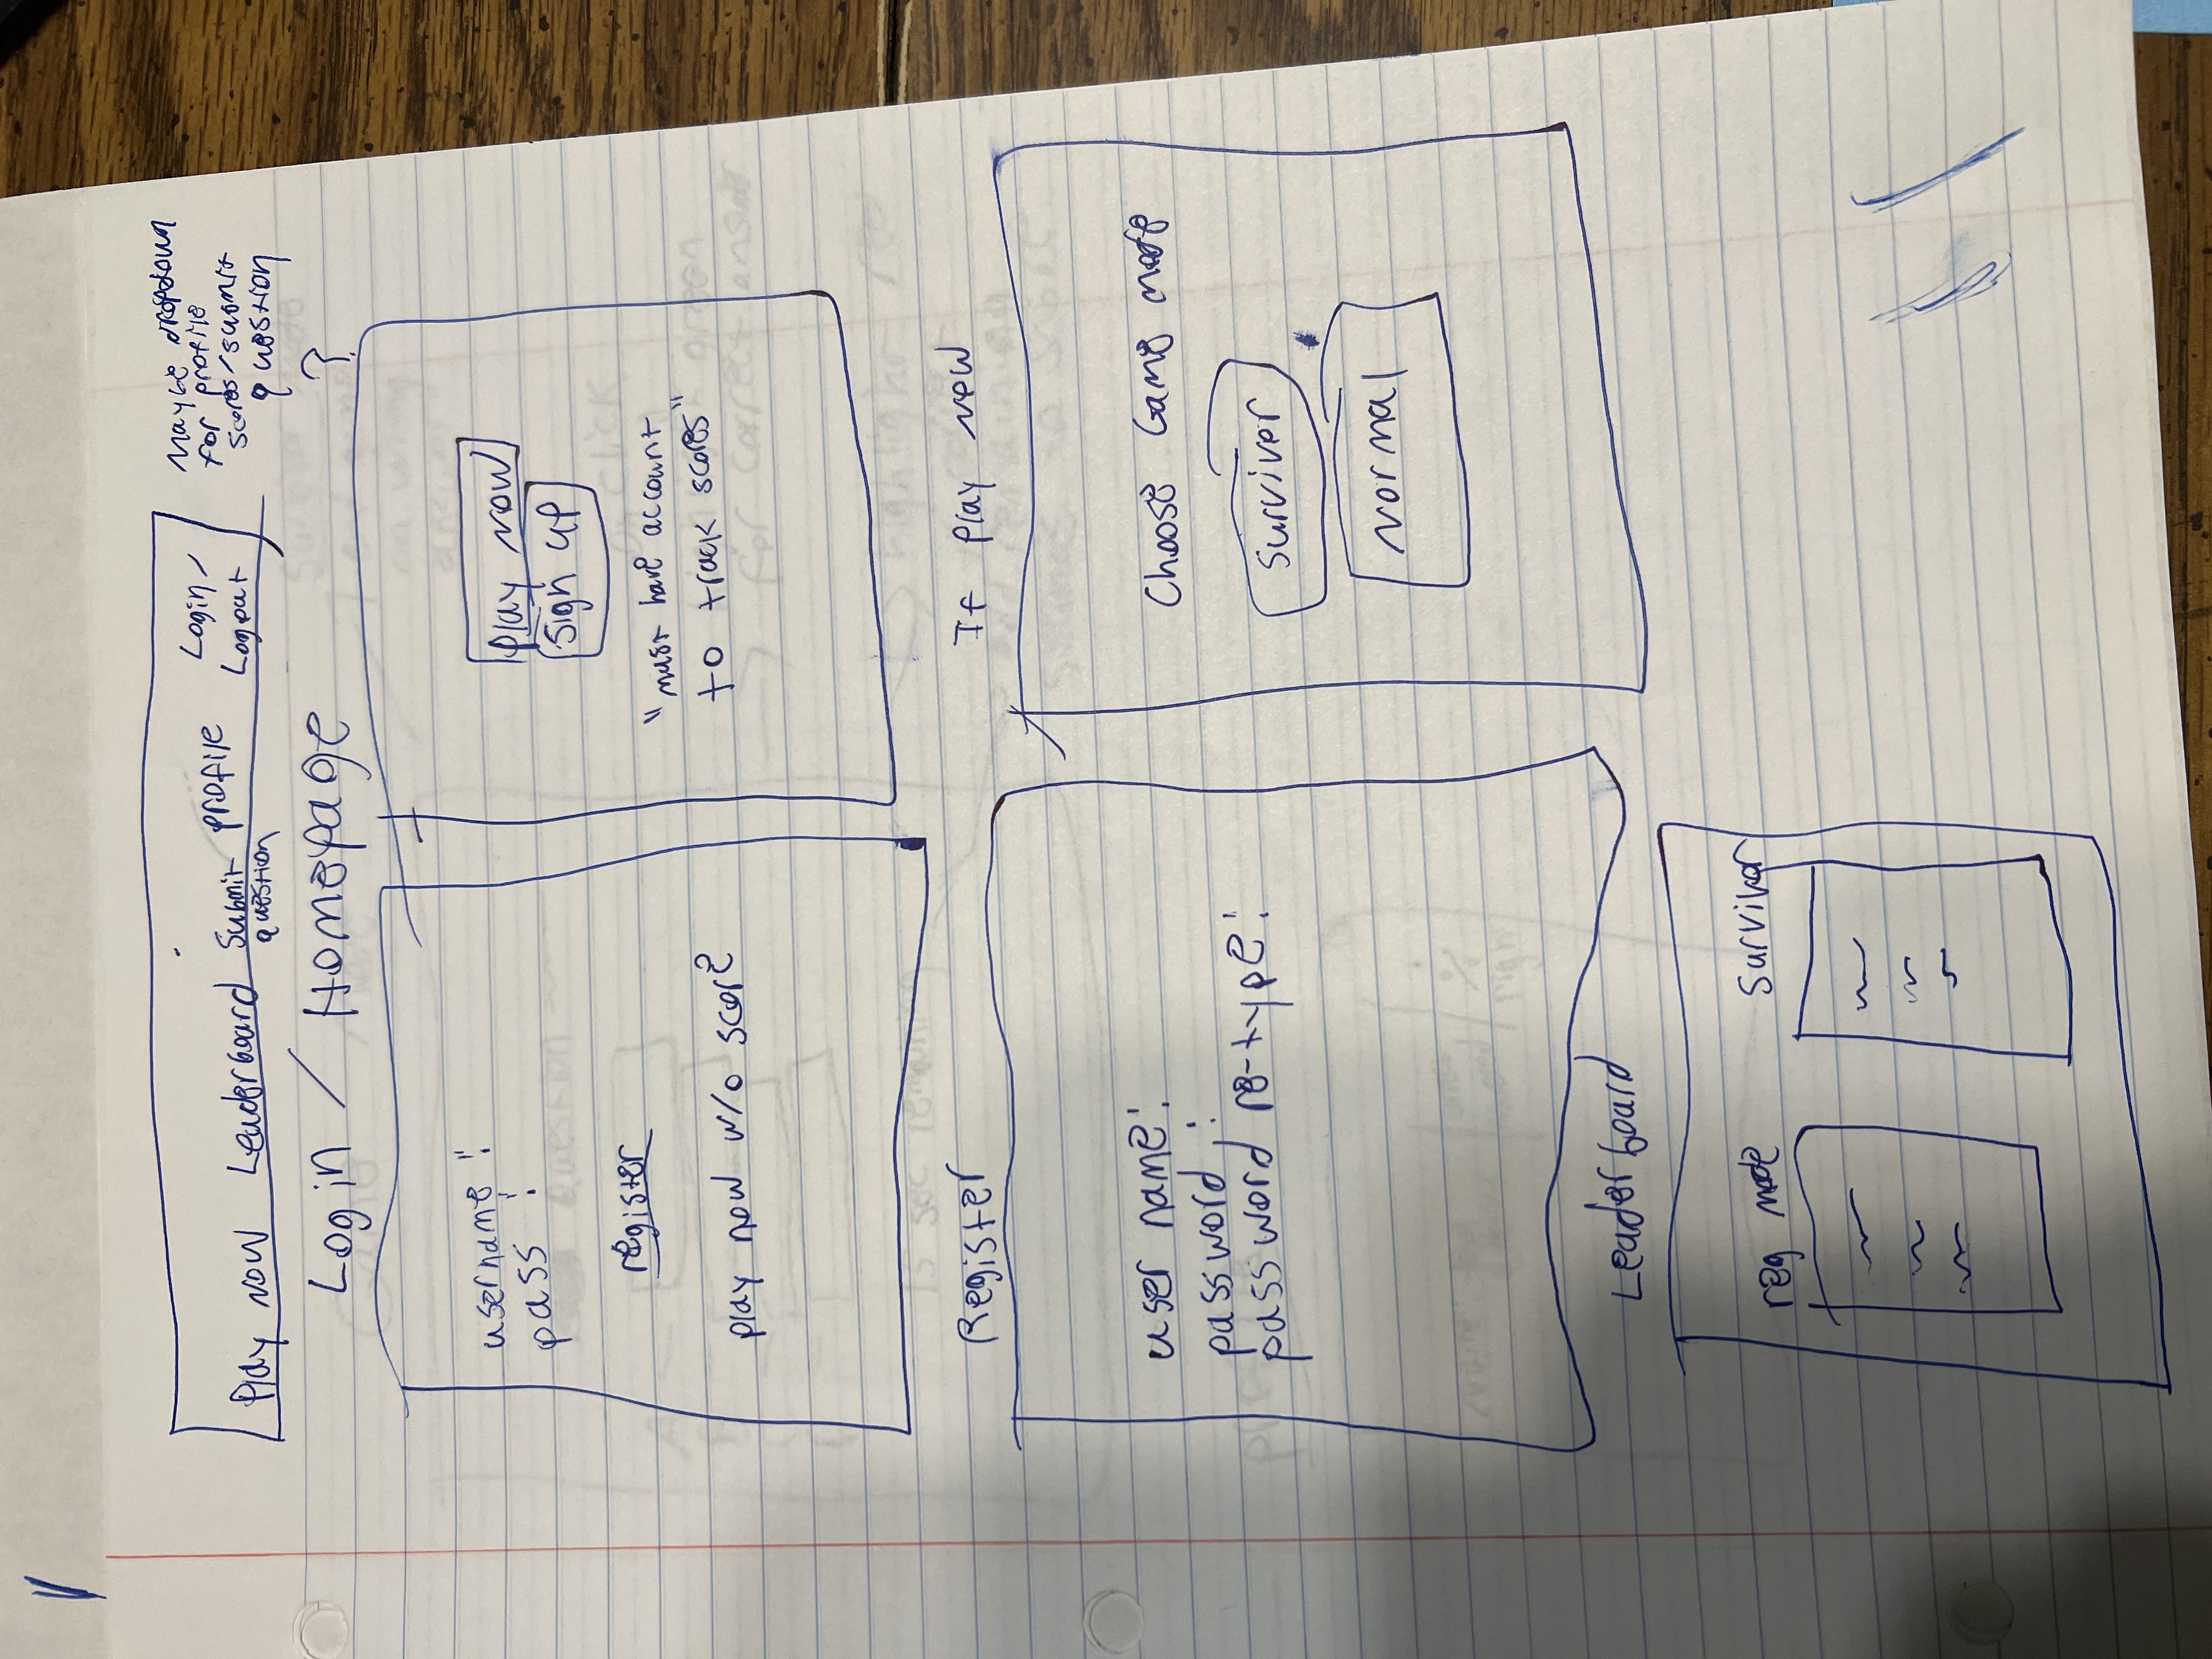 Play Now Leaderboard Submit question profile Login / Logout
Maybe dropdown
for profile
scores/submit
question
?
Login / Homepage
username :
pass :
register
play now w/o score
play now
sign up
"must have account
to track scores"
Register
user name:
password :
password re-type:
If play now
Choose Game mode
Surviver
Normal
Leaderboard
reg mode
Survivor